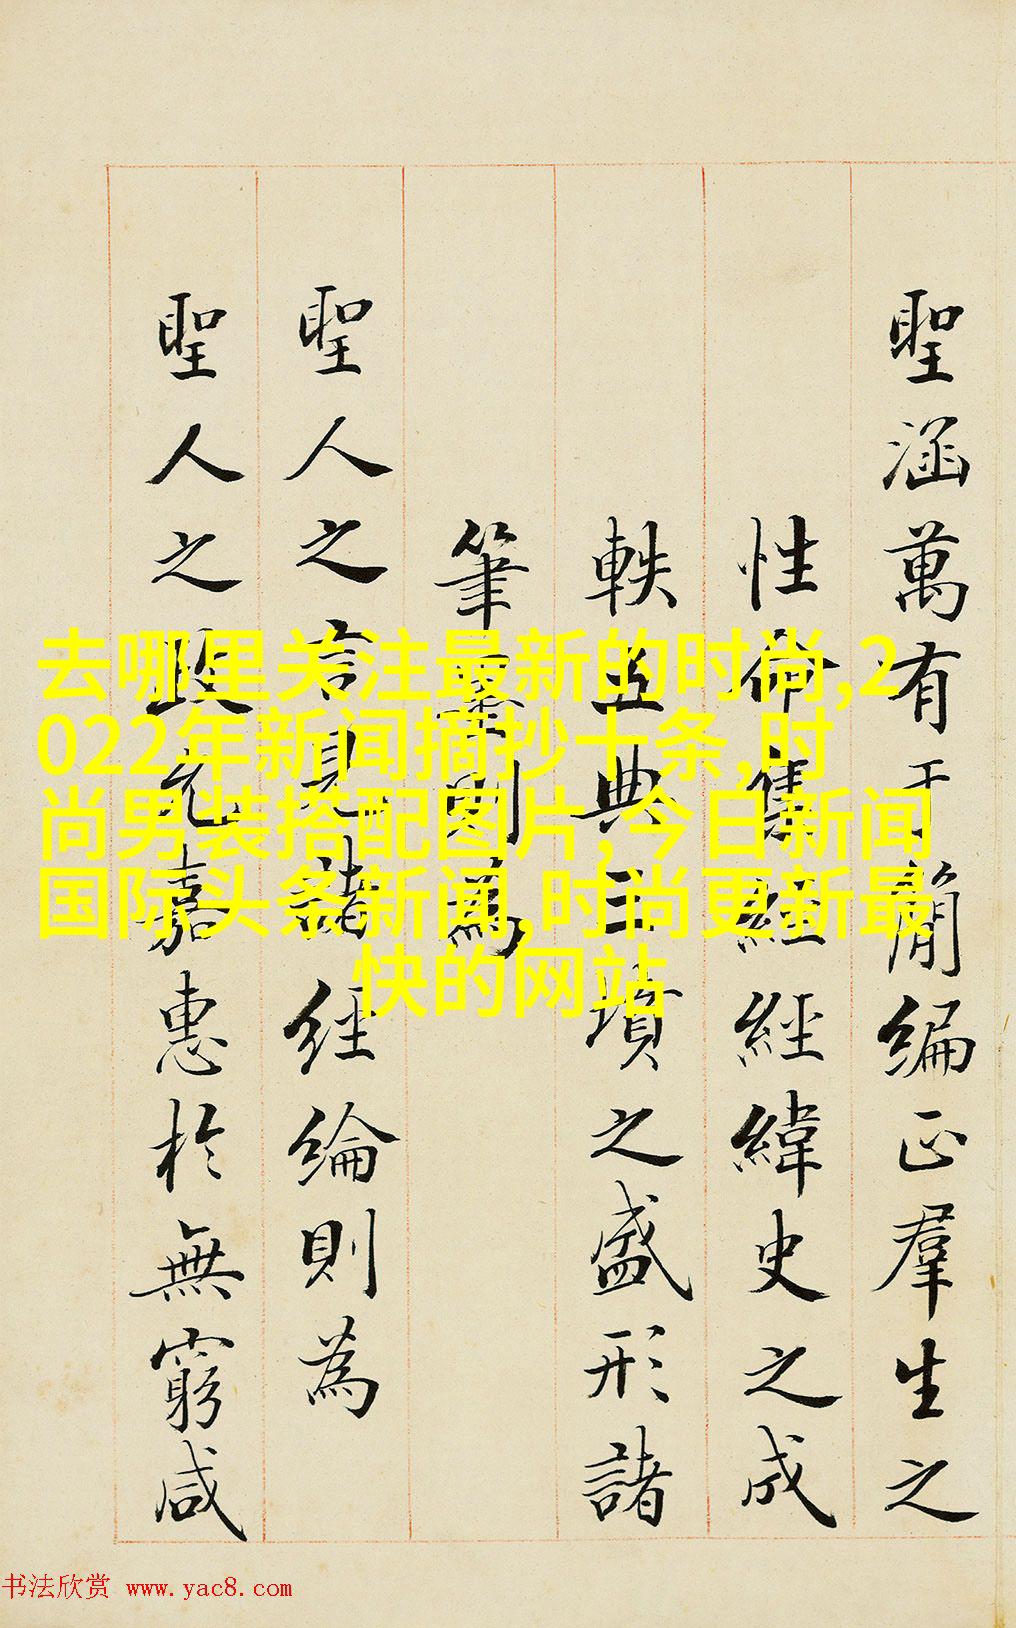 聖涵萬有于簡編正羣生之
性命集經經緯史之成
軼五典三墳之盛形諸
筆墨則為
聖人之言見諸經綸則為
聖人之政嘉惠於無窮咸
去哪里关注最新的时尚,2
022年新闻摘抄十条,时
尚男装搭配图片,今日新闻
国际头条新闻,时尚更新最
快的网站
书法欣赏 www.yac8.com